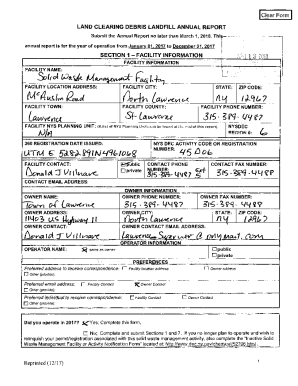 Clear Form
LAND CLEARING DEBRIS LANDFILL ANNUAL REPORT
Submit the Annual Report no later than March 1, 2018. This
annual report is for the year of operation from January 01, 2017 to December 31, 2017
SECTION 1 – FACILITY INFORMATION
FACILITY INFORMATION
FACILITY NAME:
Solid Waste Management Facility
FACILITY LOCATION ADDRESS: FACILITY CITY: STATE: ZIP CODE:
McAuslin Road North Lawrence NY 12967
FACILITY TOWN: FACILITY COUNTY: FACILITY PHONE NUMBER:
Lawrence St-Lawrence 315-389-4487
FACILITY NYS PLANNING UNIT: NYSDEC
N/A REGION #: 6
360 REGISTRATION DATE ISSUED: NYS DEC ACTIVITY CODE OR REGISTRATION
NUMBER: 45D06
FACILITY CONTACT: public CONTACT PHONE CONTACT FAX NUMBER:
Donald J Villnave private NUMBER: 315-389-4487 Ext 5
CONTACT EMAIL ADDRESS:
OWNER INFORMATION
OWNER NAME: OWNER PHONE NUMBER: OWNER FAX NUMBER:
Town of Lawrence 315-389-4487
OWNER ADDRESS: OWNER CITY: STATE: ZIP CODE:
11403 US Highway 11 North Lawrence NY 12967
OWNER CONTACT: OWNER CONTACT EMAIL ADDRESS:
Donald J Villnave
OPERATOR INFORMATION
OPERATOR NAME: same as owner public
private
PREFERENCES
Preferred address to receive correspondence: Facility location address Owner address
Other (provide):
Preferred email address: Facility Contact Owner Contact
Other (provide):
Preferred individual to receive correspondence: Facility Contact Owner Contact
Other (provide):
Did you operate in 2017? Yes; Complete this form.
No; Complete and submit Sections 1 and 7. If you no longer plan to operate and wish to
relinquish your permit/registration associated with this solid waste management activity, also complete the "Inactive Solid
Waste Management Facility or Activity Notification Form" located at:
Reprinted (12/17)